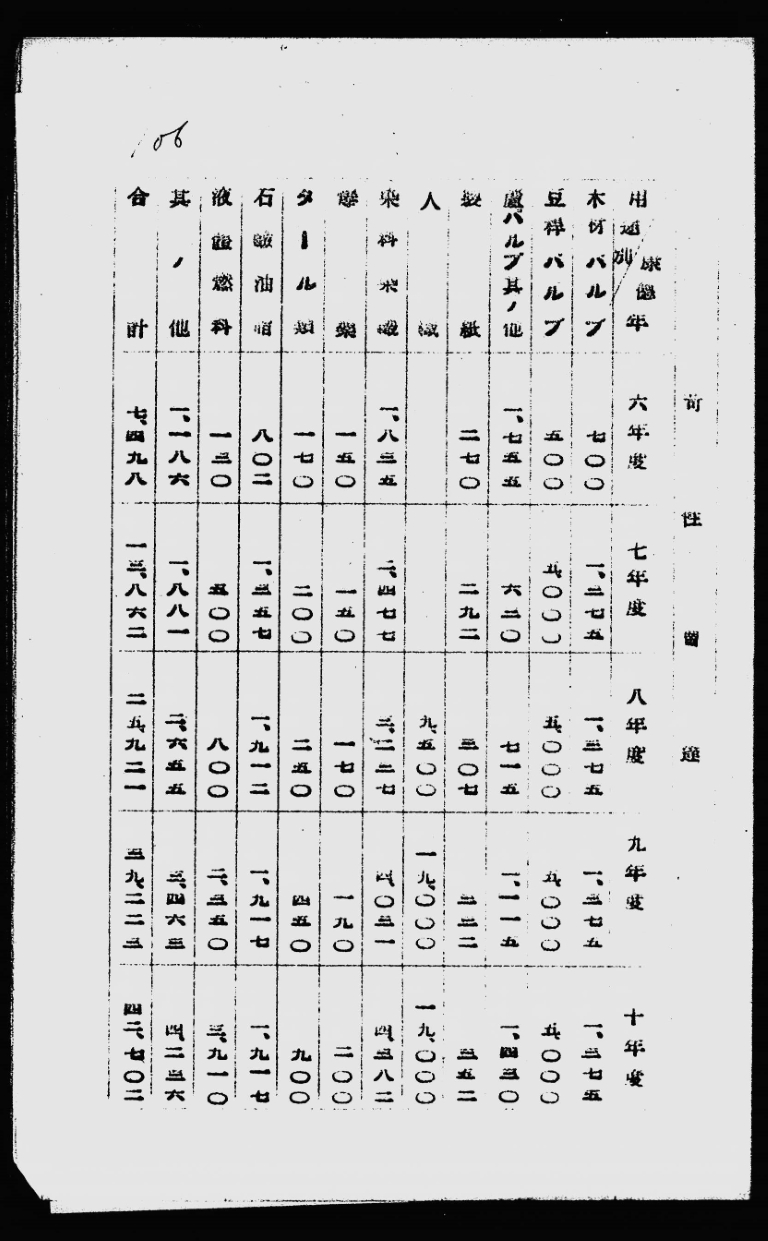 106
苛性曹達
用途別 康徳年 六年度 七年度 八年度 九年度 十年度
木材パルプ 七〇〇 一、三七五 一、三七五 一、三七五 一、三七五
豆稈パルプ 五〇〇 五、〇〇〇 五、〇〇〇 五、〇〇〇 五、〇〇〇
蘆パルプ其ノ他 一、七五五 六三〇 七一五 一、一一五 一、四三〇
製紙 二七〇 二九二 三〇七 三三二 三五二
人繊 九、五〇〇 一九、〇〇〇 一九、〇〇〇
染料染織 一、八三五 二、四七七 三、二三七 四、〇三一 四、三八二
爆薬 一五〇 一五〇 一七〇 一九〇 二〇〇
タール類 一七〇 二〇〇 二五〇 四五〇 九〇〇
石鹸油脂 八〇二 一、三五七 一、九一二 一、九一七 一、九一七
液體燃料 一三〇 五〇〇 八〇〇 二、三五〇 三、九一〇
其ノ他 一、一八六 一、八八一 二、六五五 三、四六三 四、二三六
合計 七、四九八 一三、八六二 二五、九二一 三九、二二三 四二、七〇二